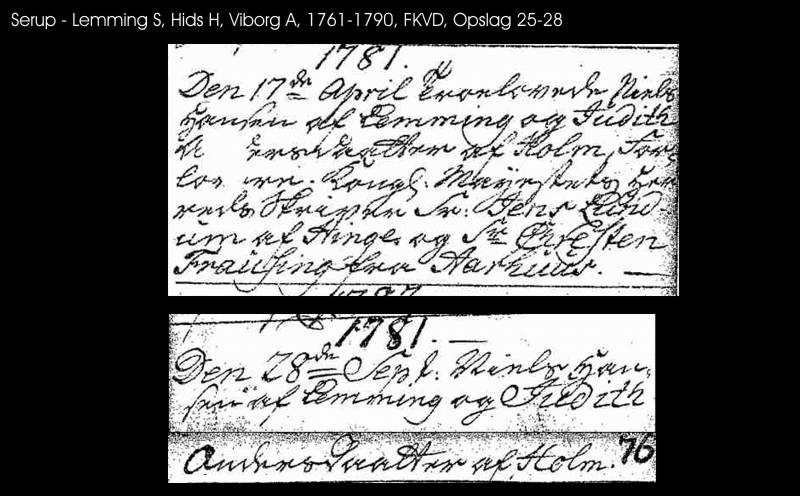 Serup - Lemming S, Hids H, Viborg A, 1761-1790, FKVD, Opslag 25-28
1781.
Den 17de April Troelovede Niels
Hansen af Lemming og Judith
A ersdaatter af Holm, For-
lov re. Kongl: Mayestets Her
reds Skriver Sr: Jens Lund-
um af Hinge og Sr Christen
Frausing fra Aarhuus.
1781.
Den 28de Sept. Niels Han-
sen af Lemming og Judith
Andersdaatter af Holm. 76